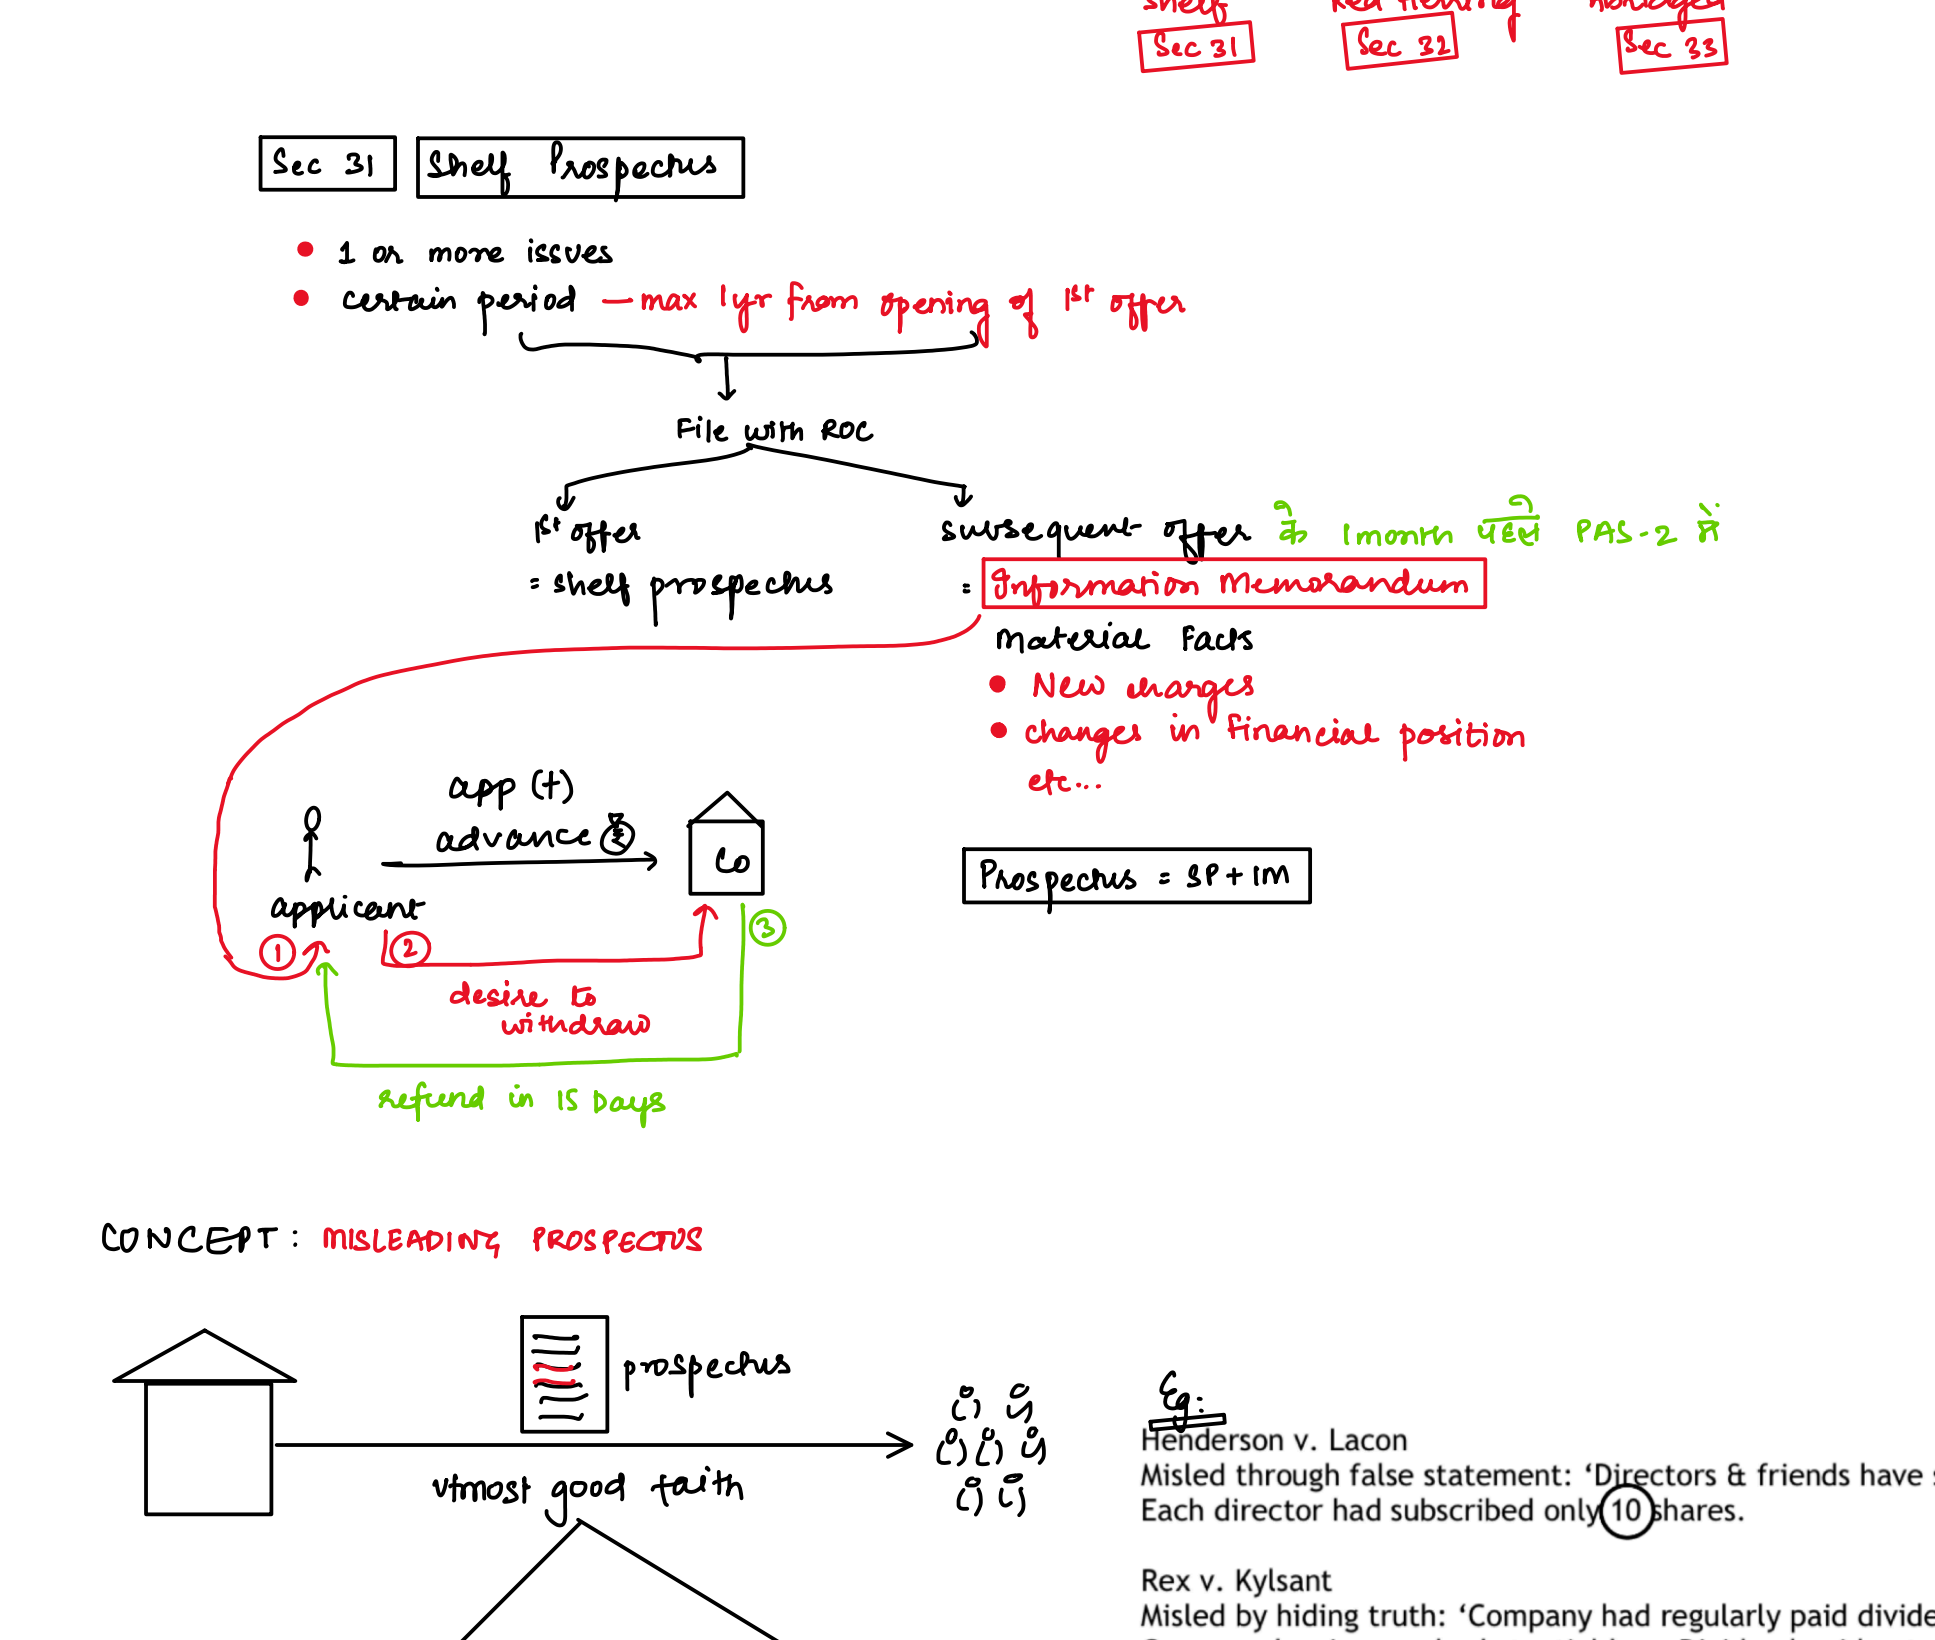 shelf Red Herring Abridged
Sec 31 Sec 32 Sec 33
Sec 31 Shelf Prospectus
1 or more issues
certain period — max 1yr from opening of 1st offer
File with ROC
1st offer
= shelf prospectus
subsequent offer के 1 month पहले PAS-2 में
= Information Memorandum
Material Facts
New charges
changes in Financial position
etc...
app (+)
advance ₹
applicant
CO
Prospectus = SP + IM
1
2
3
desire to
withdraw
refund in 15 Days
CONCEPT: MISLEADING PROSPECTUS
prospectus
utmost good faith
Eg:
Henderson v. Lacon
Misled through false statement: ‘Directors & friends have
Each director had subscribed only 10 shares.
Rex v. Kylsant
Misled by hiding truth: ‘Company had regularly paid divide